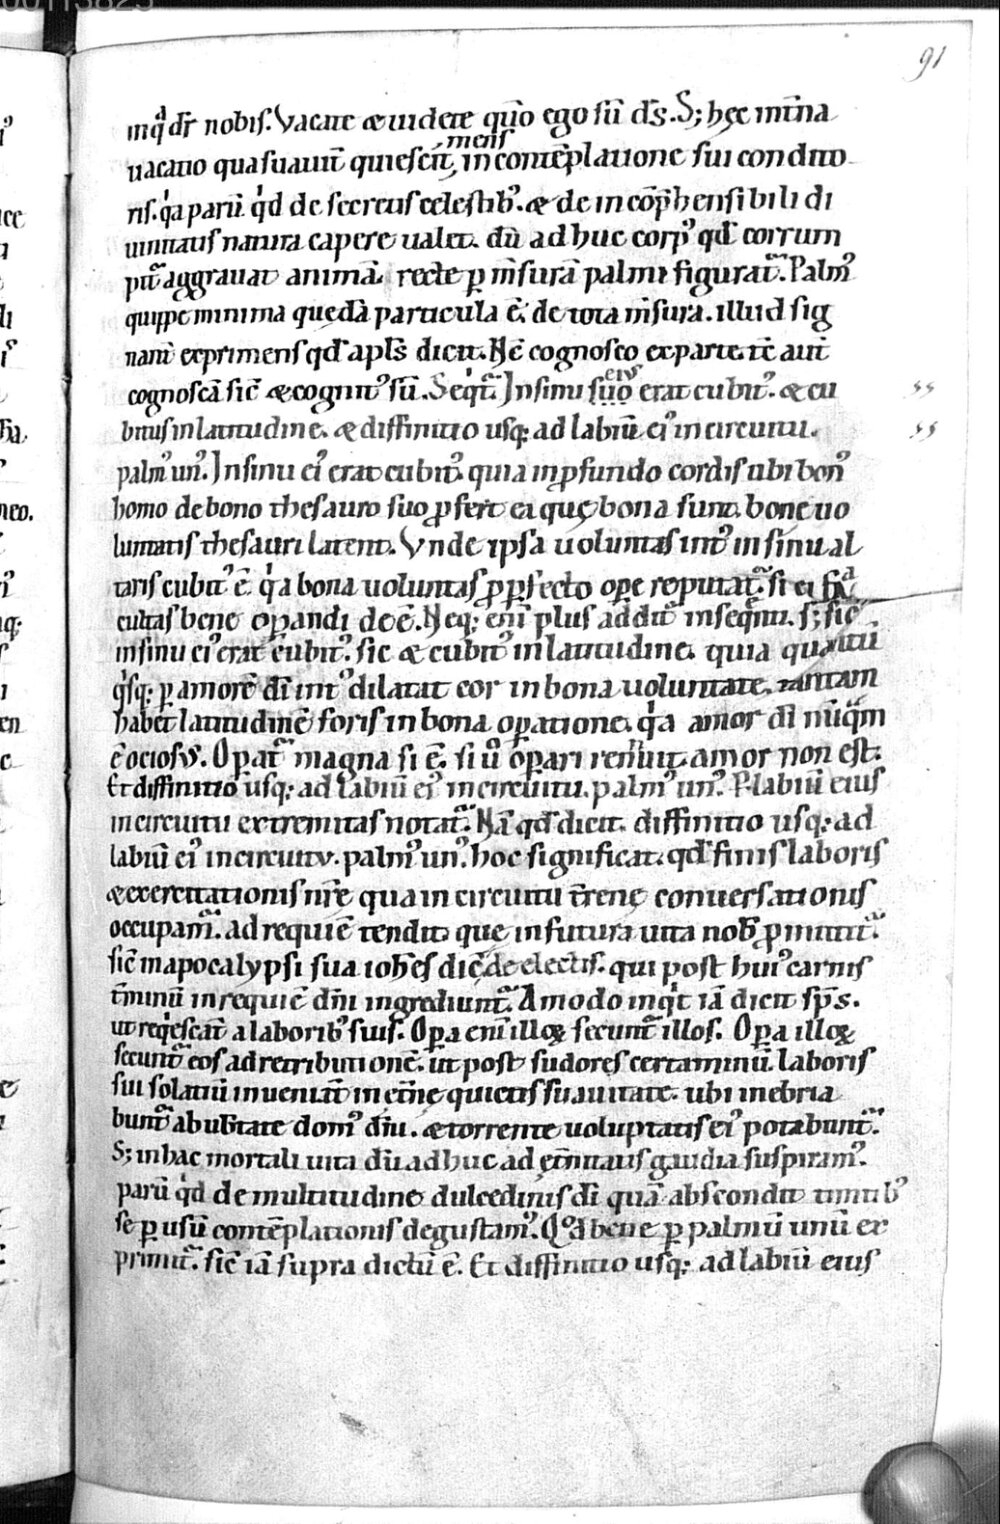 00113825
91
inq̓ dr̄ nobiſ. Vacate & uidete qm̄o ego ſu͞m d̄s. S; hęc int̄na
menſ
uacatio qua ſuauit̄ quieſcit in contēplatione ſui condito
ris. q̓a parū q̓d de ſecretiſ celeſtib᾽. & de incōp̄henſibili di
uinitatiſ natura capere ualet. dū adhuc corp᾽ qd̄ corrum
pit᷑ aggrauat animā. recte p̱ m̄ſurā palmi figurat᷑. Palm᾽
quippe minima quędā particula ē. de tota m̄ſura. illud ſig
nant̄ exprimenſ qd̄ apl̄s dicit. Nc̄ cognoſco ex parte. tc̄ aut̄
cognoſcā ſic̄ & cognit᾽ ſū. Seq̓t᷑. In ſinu ſuo erat cubit᾽. & cu
eiuſ
bituſ in latitudine. & diffinitio uſq; ad labiū ei᾽ in circuitu.
palm᾽ un᾽. In ſinu ei᾽ erat cubit᾽. quia in p̱fundo cordiſ ubi bon᾽
homo de bono theſauro ſuo p̱fert ea quę bona ſunt. bonę uo
luntatiſ theſauri latent. Vnde ipſa uoluntaſ int᾽ in ſinu al
tariſ cubit᾽ ē. q̓a bona uoluntaſ p̱ p̱fecto ope̱ reputat᷑. ſi ei fa
cultaſ bene op̱andi deē. Neq; eni͞m pluſ addit᷑ in ſeq̄nti. ſ; ſic̄
in ſinu ei᾽ erat cubit᾽. ſic & cubit᾽ in latitudine. quia quantū
q̓ſq; p̱ amorē di͞ int᾽ dilatat cor in bona uoluntate. tantam
habet latitudinē foriſ in bona op̱atione. q̓a amor di͞ nūq̄m
ē ocioſ᾽. Op̱at᷑ magna ſi ē. ſi u̓ op̱ari renuit. amor non eſt.
Et diffinitio uſq; ad labiū ei᾽ in circuitu. palm᾽ un᾽. P̱ labiū eiuſ
in circuitu extremitaſ notat᷑. Nā qd̄ dicit. diffinitio uſq; ad
labiū ei᾽ in circuitu. palm᾽ un᾽. hoc ſignificat. qd̄ finiſ laboriſ
& exercitationiſ nr̄ę qua in circuitu t̄renę conuerſationiſ
occupam᷑. ad requiē tendit. que in futura uita nob̄ p̱mittit᷑.
ſic̄ in apocalypſi ſua ioh̄eſ dic̄ de electiſ. qui poſt hui᾽ carniſ
t̄minū in requiē dn̄i ingrediunt᷑. Amodo inq̓t iā dicit ſp̄s.
ut req̓eſcāt a laborib᾽ ſuiſ. Op̱a eni͞m illoꝝ ſecunt᷑ illoſ. Op̱a illoꝝ
ſecunt᷑ eoſ ad retributionē. ut poſt ſudoreſ certaminū. laboriſ
ſui ſolatiū inueniāt in et̄nę quietiſ ſuauitate. ubi inebria
bunt᷑ ab ub̄tate dom᾽ dn̄i. & torrente uoluptatiſ ei᾽ potabunt᷑.
S; in hac mortali uita dū adhuc ad et̄nitatiſ gaudia ſuſpiram᾽.
parū q̓d de multitudine dulcediniſ di͞ quā abſcondit timtib᾽
ſe p̱ uſū contēplationiſ deguſtam᾽. Qd̄ bene p̱ palmū unū ex
primit᷑. ſic̄ iā ſupra dictū ē. Et diffinitio uſq; ad labiū eiuſ